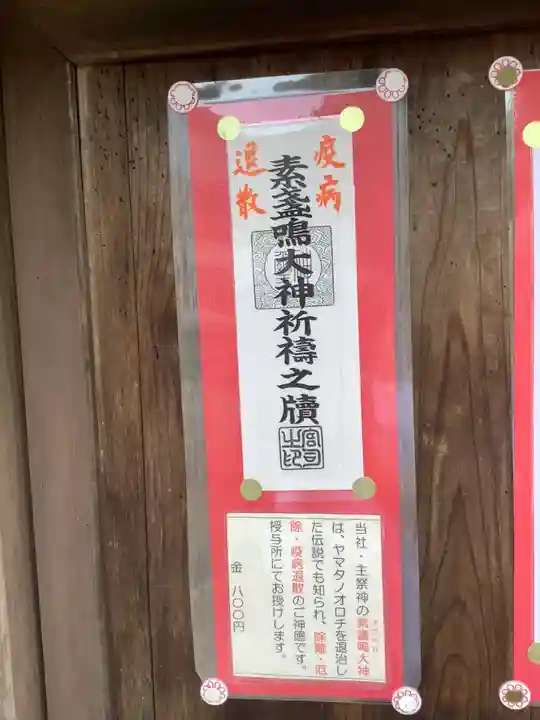 疫病
退散
素盞嗚大神祈禱之牘
宮司之印
当社・主祭神の素盞嗚大神
は、ヤマタノオロチを退治し
た伝説でも知られ、除難・厄
除・疫病退散のご神徳です。
授与所にてお授けします。
金 八〇〇円